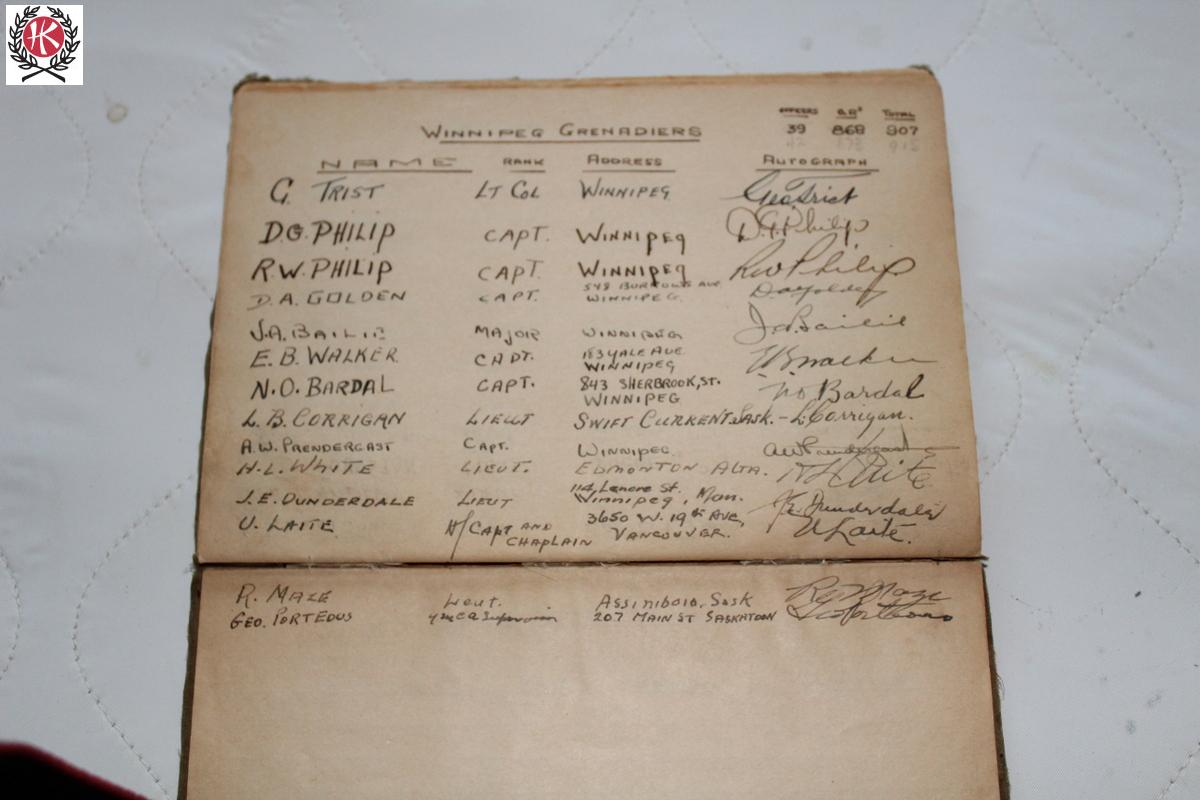 HK
WINNIPEG GRENADIERS
OFFICERS O.R's TOTAL
39 868 907
NAME RANK ADDRESS AUTOGRAPH
G. TRIST LT COL WINNIPEG Geo Trist
D.G. PHILIP CAPT. WINNIPEG D.G. Philip
R.W. PHILIP CAPT. WINNIPEG R W Philip
548 BURROWS AVE.
D.A. GOLDEN CAPT. WINNIPEG. Da Golden
J.A. BAILIE MAJOR WINNIPEG J.A. Bailie
183 YALE AVE
E.B. WALKER CAPT. WINNIPEG
N.O. BARDAL CAPT. 843 SHERBROOK, ST. N O Bardal
WINNIPEG
L.B. CORRIGAN LIEUT SWIFT CURRENT Sask. - L. Corrigan.
A.W. PRENDERGAST CAPT. WINNIPEG. AW Prendergast
H.L. WHITE LIEUT. EDMONTON ALTA. H L White
114 Lenore St.
J.E. DUNDERDALE LIEUT Winnipeg, Man. J E Dunderdale
U. LAITE H/CAPT AND 3650 W. 19th AVE, U Laite.
CHAPLAIN VANCOUVER.
R. MAZE Lieut. Assiniboia, Sask Maze
GEO. PORTEOUS YMCA Supervisor 207 MAIN ST SASKATOON Porteous